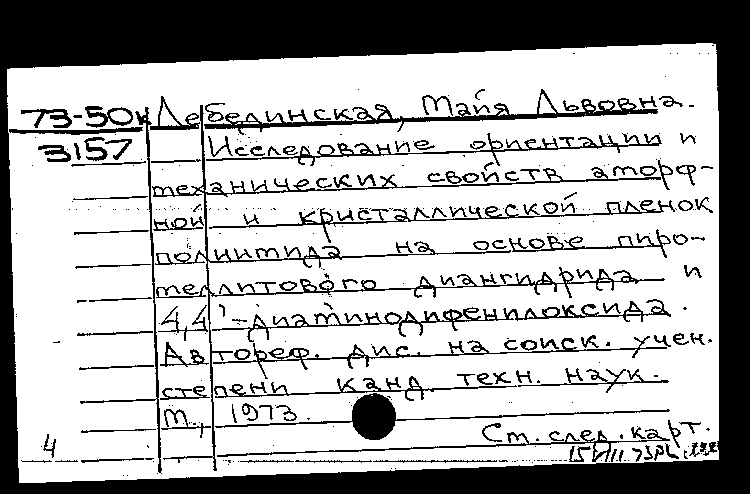 73-50к Лебединская, Майя Львовна.
3157 Исследование ориентации и
механических свойств аморф-
ной и кристаллической пленок
полиимида на основе пиро-
меллитового диангидрида и
4,4'-диаминодифенилоксида.
Автореф. дис. на соиск. учен.
степени канд. техн. наук.
М., 1973.
См. след. карт.
4